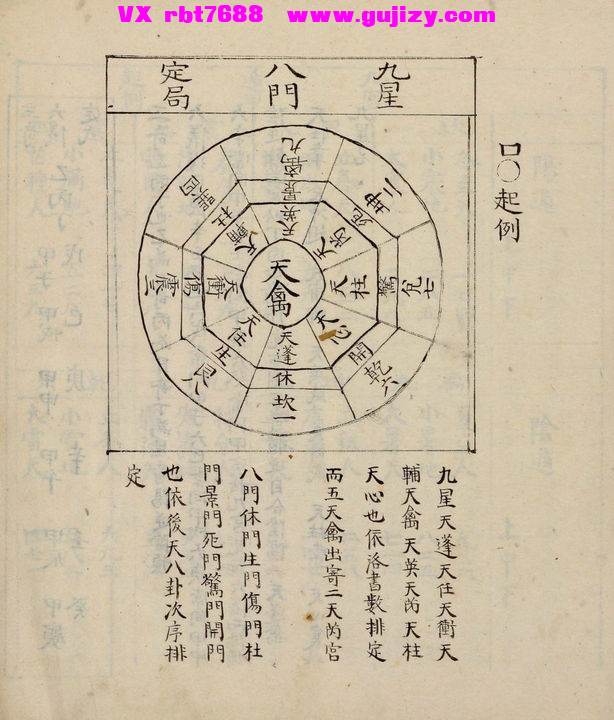 VX rbt7688 www.gujizy.com
口〇起例
九星
八門
定局
天禽
天蓬
休
坎一
天任
生
艮八
天衝
傷
震三
天輔
杜
巽四
天英
景
离九
天芮
死
坤二
天柱
驚
兌七
天心
開
乾六
九星天蓬天任天衝天
輔天禽天英天芮天柱
天心也依洛書數排定
而五天禽出寄二天芮宮
八門休門生門傷門杜
門景門死門驚門開門
也依後天八卦次序排
定